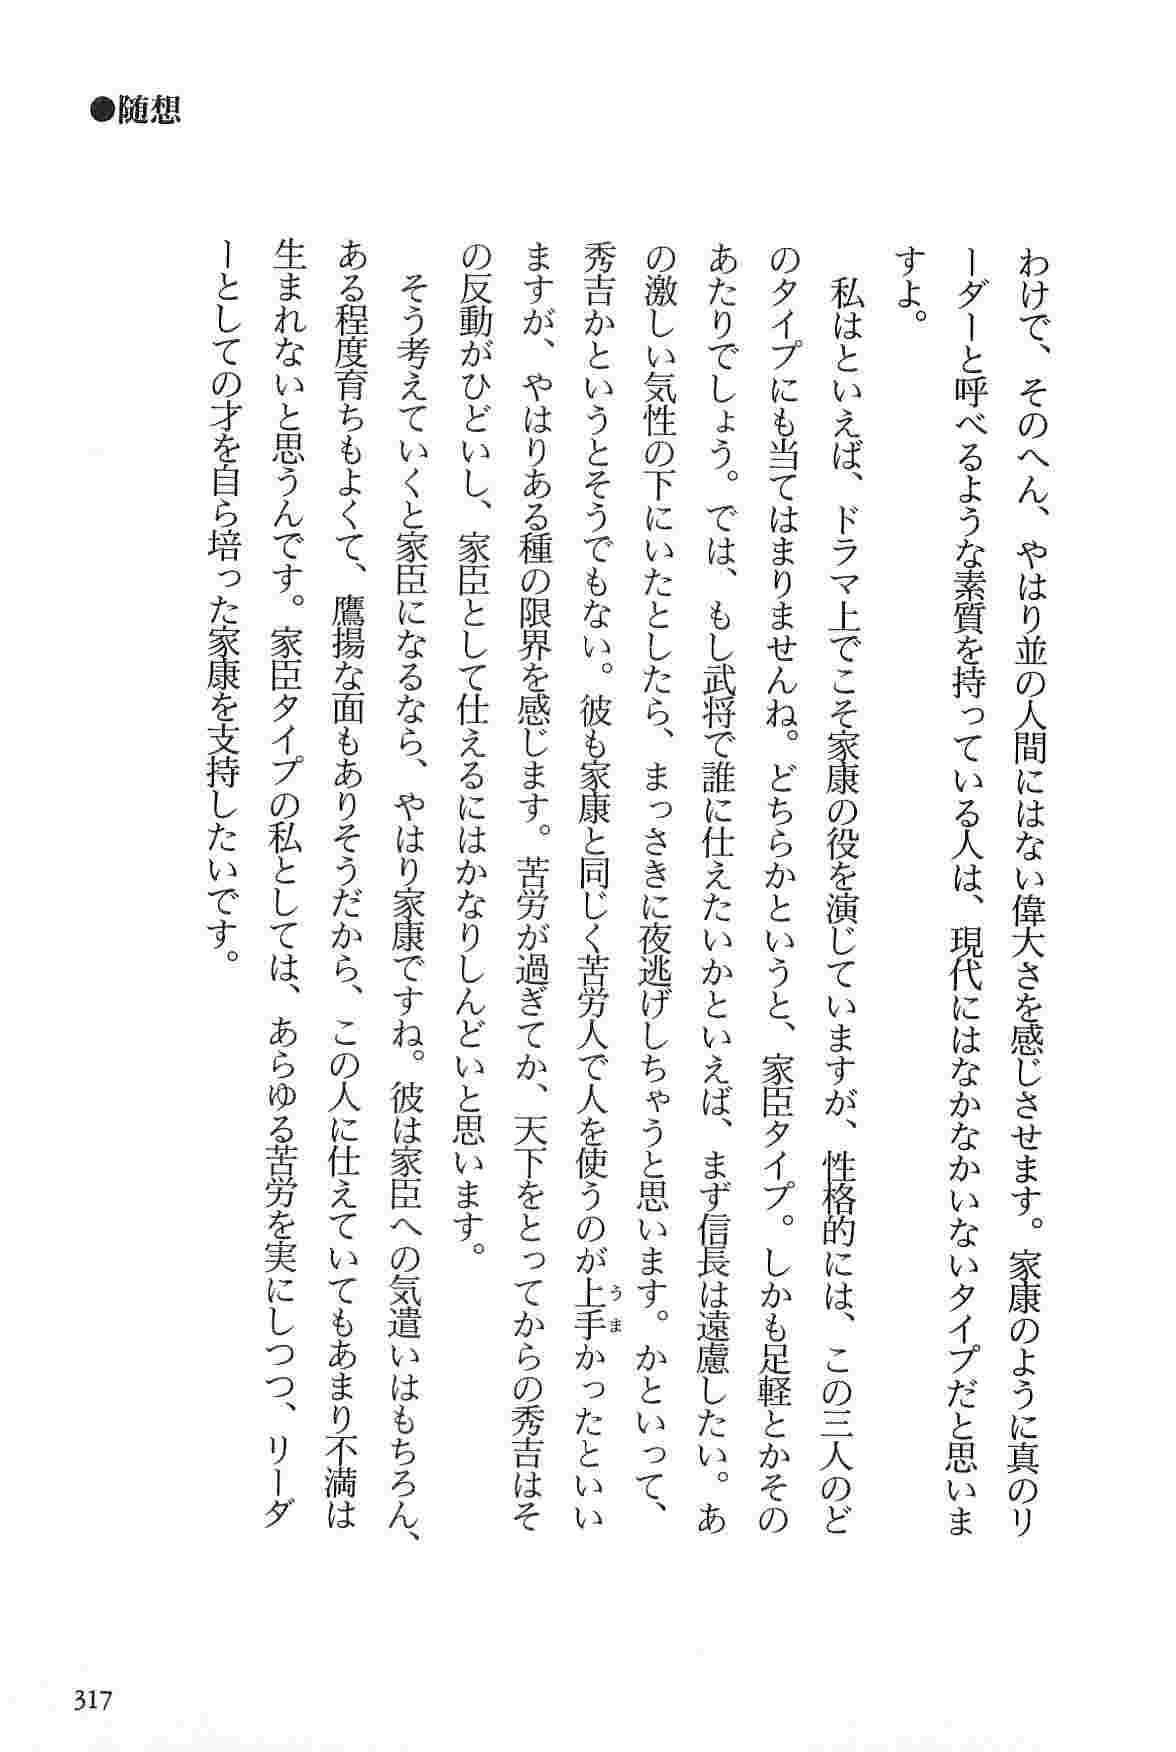 ●随想
わけで、そのへん、やはり並の人間にはない偉大さを感じさせます。家康のように真のリ
ーダーと呼べるような素質を持っている人は、現代にはなかなかいないタイプだと思いま
すよ。
私はといえば、ドラマ上でこそ家康の役を演じていますが、性格的には、この三人のど
のタイプにも当てはまりませんね。どちらかというと、家臣タイプ。しかも足軽とかその
あたりでしょう。では、もし武将で誰に仕えたいかといえば、まず信長は遠慮したい。あ
の激しい気性の下にいたとしたら、まっさきに夜逃げしちゃうと思います。かといって、
秀吉かというとそうでもない。彼も家康と同じく苦労人で人を使うのが上手かったといい
うま
ますが、やはりある種の限界を感じます。苦労が過ぎてか、天下をとってからの秀吉はそ
の反動がひどいし、家臣として仕えるにはかなりしんどいと思います。
そう考えていくと家臣になるなら、やはり家康ですね。彼は家臣への気遣いはもちろん、
ある程度育ちもよくて、鷹揚な面もありそうだから、この人に仕えていてもあまり不満は
生まれないと思うんです。家臣タイプの私としては、あらゆる苦労を実にしつつ、リーダ
ーとしての才を自ら培った家康を支持したいです。
317